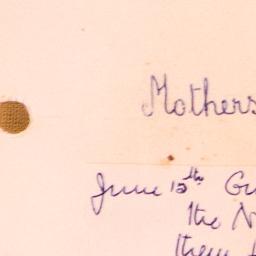 Mothers
June 15th Gu
the N
them